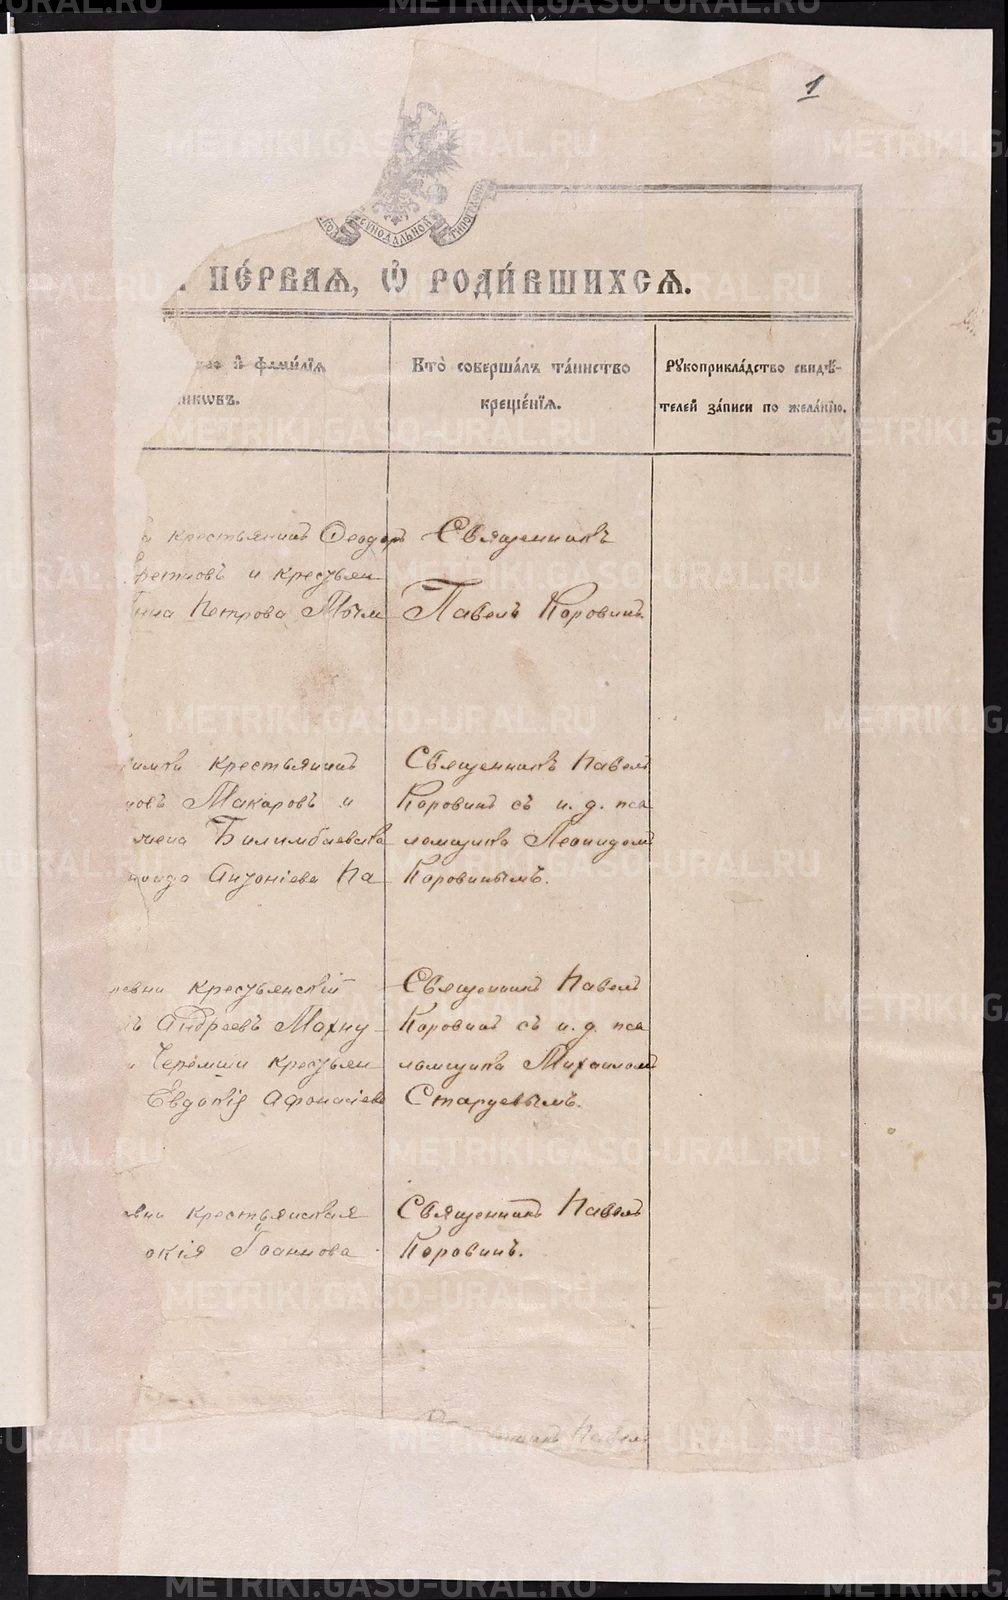 1
СѴНОДАЛЬНОЙ ТИПОГРАФІИ
ПЕ́РВАѦ, Ѡ҆ РОДИ́ВШИХСѦ.
и҆ фами́лїѧ
никѡвъ.
Кто̀ соверша́лъ та́инство
креще́нїѧ.
Рꙋкоприкла́дство свидѣ́-
телей за́писи по жела́нїю.
крестьянинъ Ѳеодоръ
и крестьян
Петрова
Священникъ
Павелъ Коровинъ.
крестьянинъ
Макаровъ и
Билимбаевска
Антоніева Па
Священникъ Павелъ
Коровинъ съ и. д. пса
ломщика Леонидомъ
Коровинымъ.
крестьянскій
Андреевъ Махну
Черемши крестьян
Евдокія Афонасіева
Священникъ Павелъ
Коровинъ съ и. д. пса
ломщика Михаиломъ
Старцевымъ.
крестьянская
окія Іоаннова
Священникъ Павелъ
Коровинъ.
Павелъ
METRIKI.GASO-URAL.RU